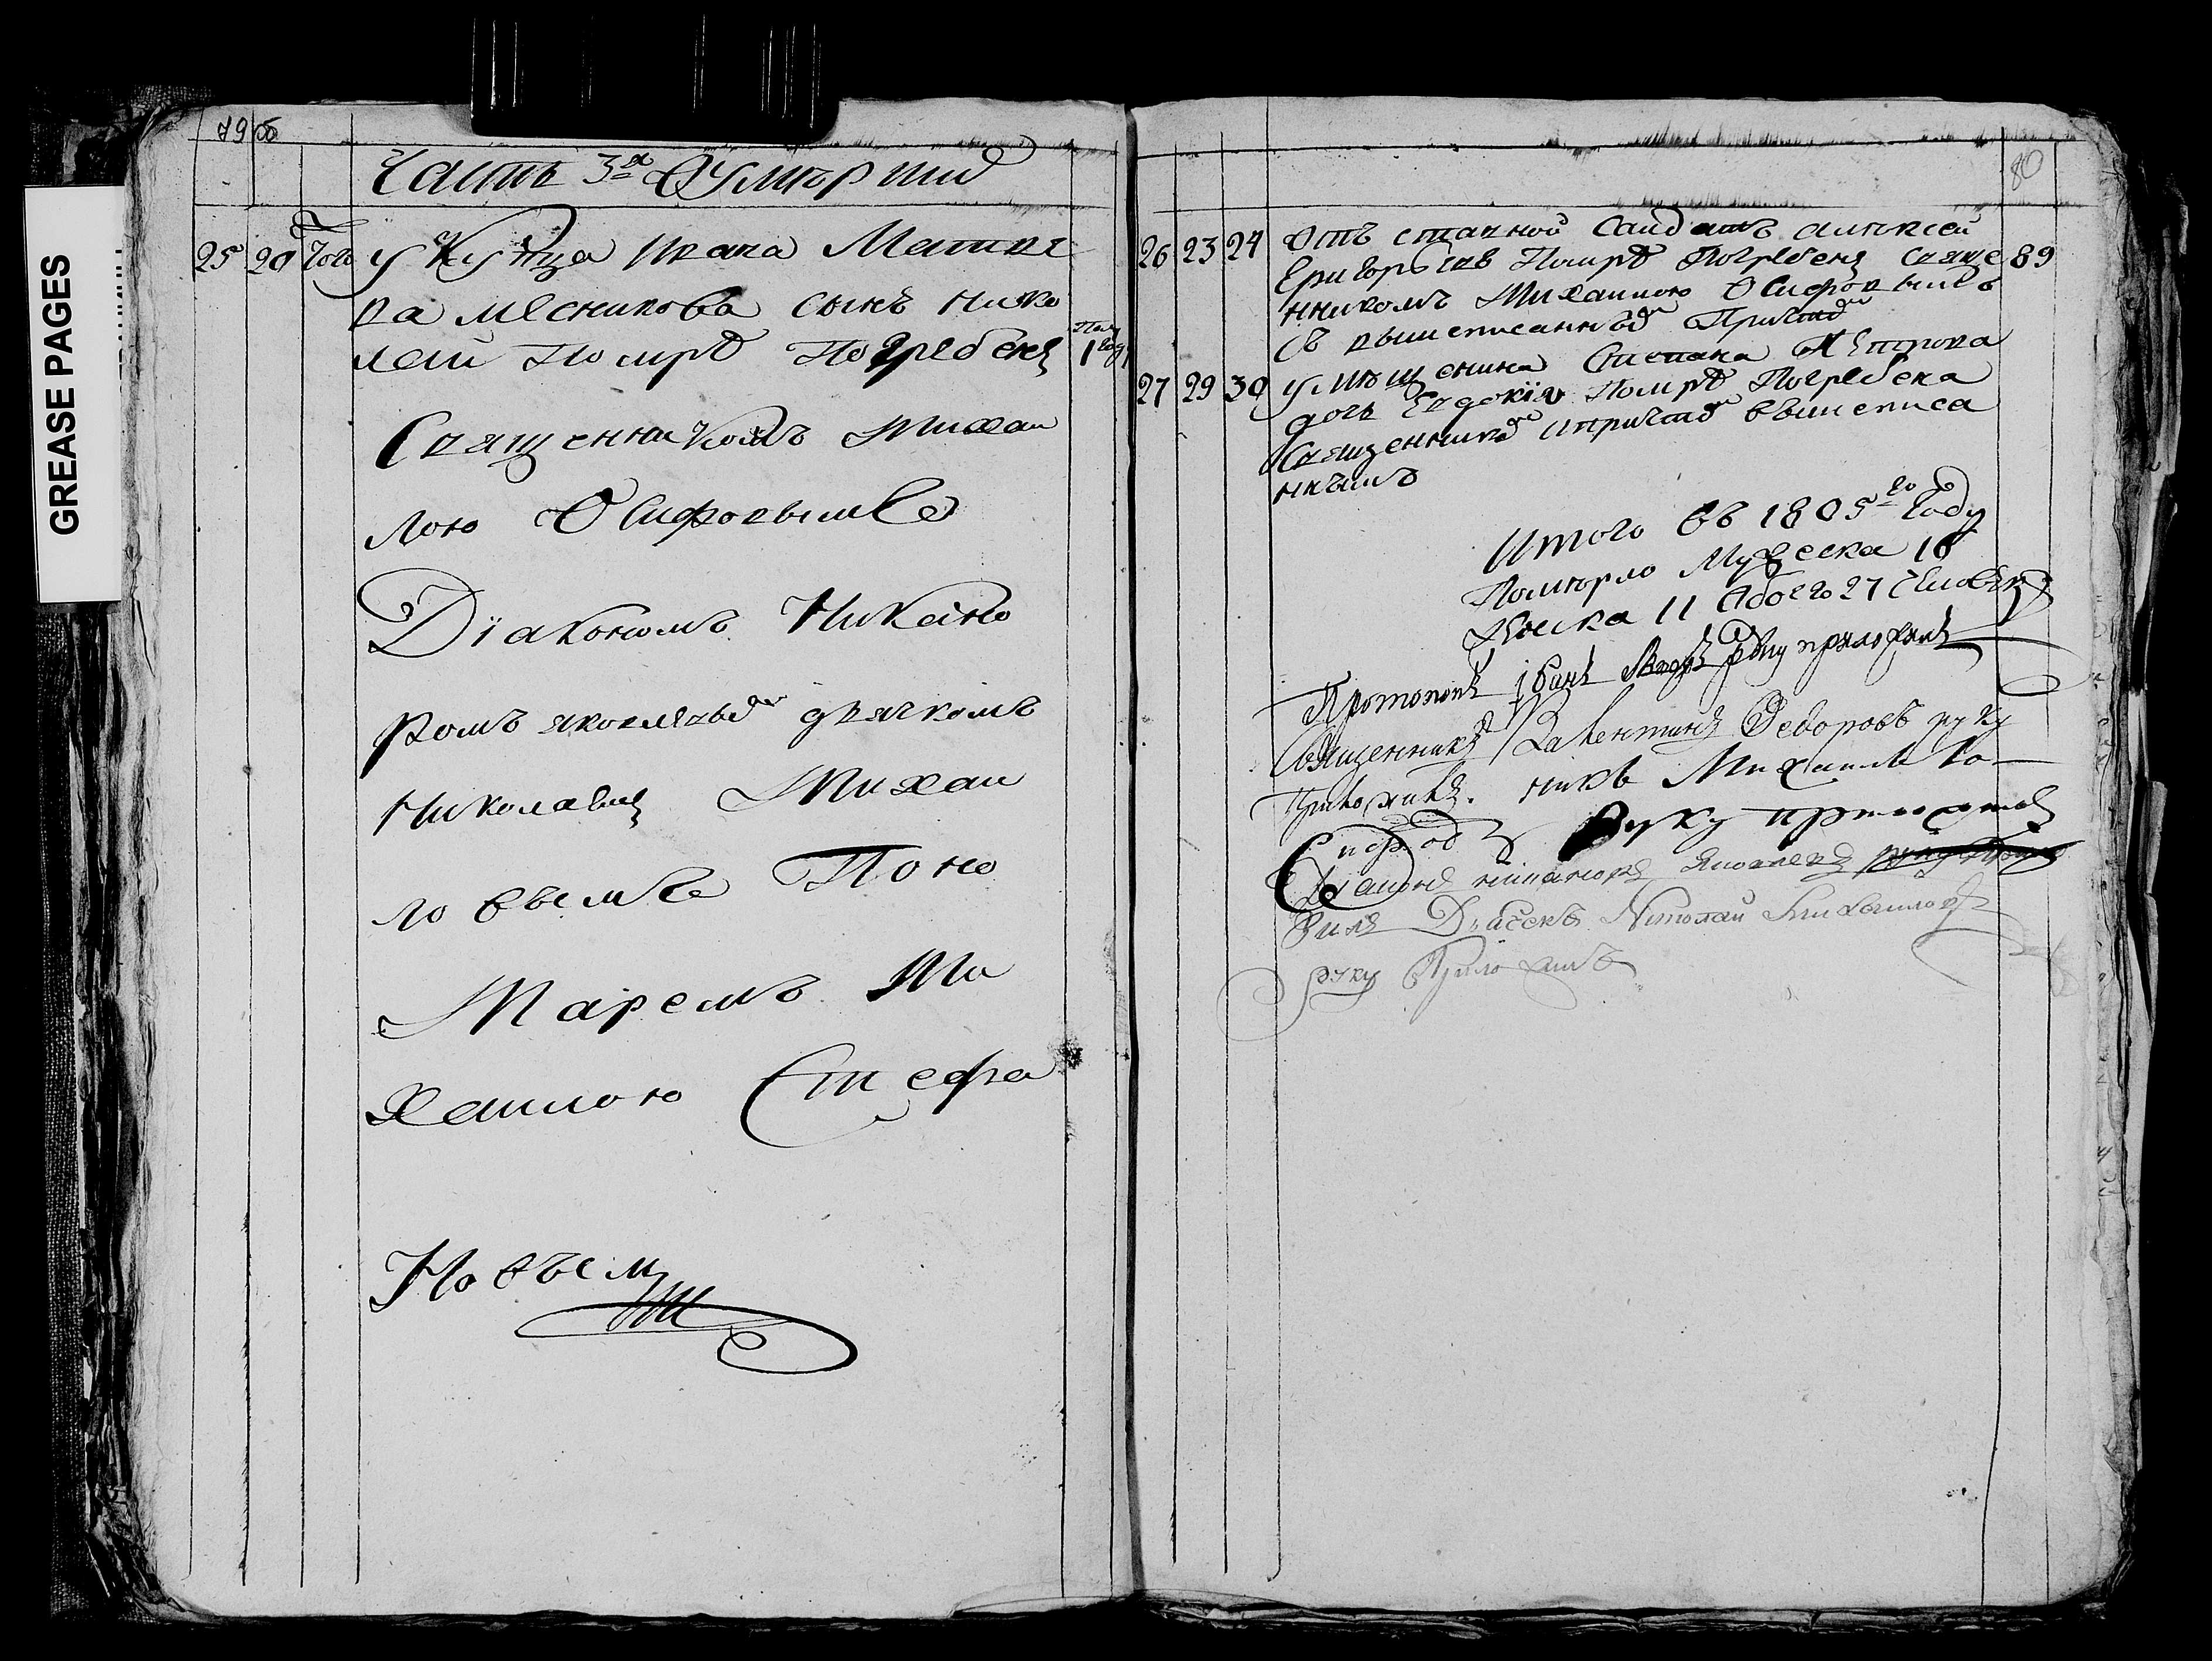 GREASE PAGES
79 об
Часть 3я О Умерши
25 20 Того У Купца Ивана Матвѣе
ва мѣсникова сынъ нико
лай Помръ Погребенъ 1 год
Священникомъ Михаи
лою Осифовымъ
Діакономъ Никано
ромъ яковлевымъ дьячкомъ
Николаемъ Михаи
ловымъ Поно
маремъ Ми
хаилою Стефа
Новымъ
80
26 23 24 Отъ ставной Салдатъ алексей
Григорьевъ Помръ Погребенъ Свяще 89
нникомъ Михаилою Осифовымъ
съ вышеписаннымъ Причтомъ
27 29 30 У мещенина Степана Петрова
дочь Евдокія Помръ Погребена
Священникомъ и причтомъ вышеписа
ннымъ
Итого въ 1805го Году
Померло Мужеска 16
Женска 11 Обоего 27 Человекъ
Протопопъ Іоанъ руку приложилъ
Священникъ Валентинъ Федоровъ руку
приложилъ. никъ Михаилъ
руку приложилъ
Диаконъ никаноръ Яковлевъ
Дьячекъ Николай Михаиловъ
руку Приложилъ